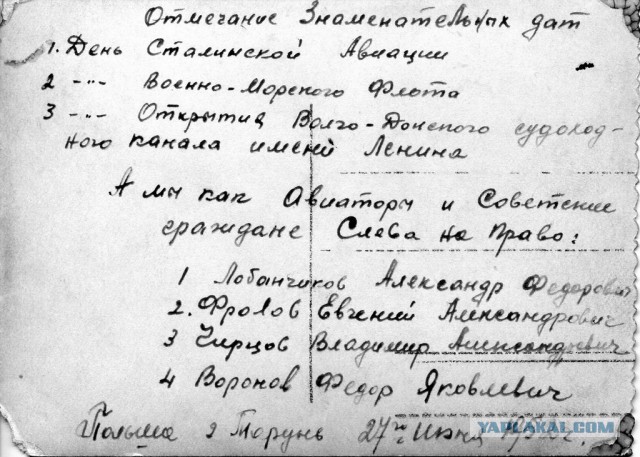 Отмечание Знаменательных дат
1. День Сталинской Авиации
2 -"- Военно-Морского Флота
3 -"- Открытия Волго-Донского судоход-
ного канала имени Ленина
А мы как Авиаторы и Советские
граждане Слева на Право:
1 Лобанчиков Александр Федорович
2. Фролов Евгений Александрович
3 Чирцов Владимир Александрович
4 Воронов Федор Яковлевич
Польша г Торунь 27го
YAPLAKAL.COM